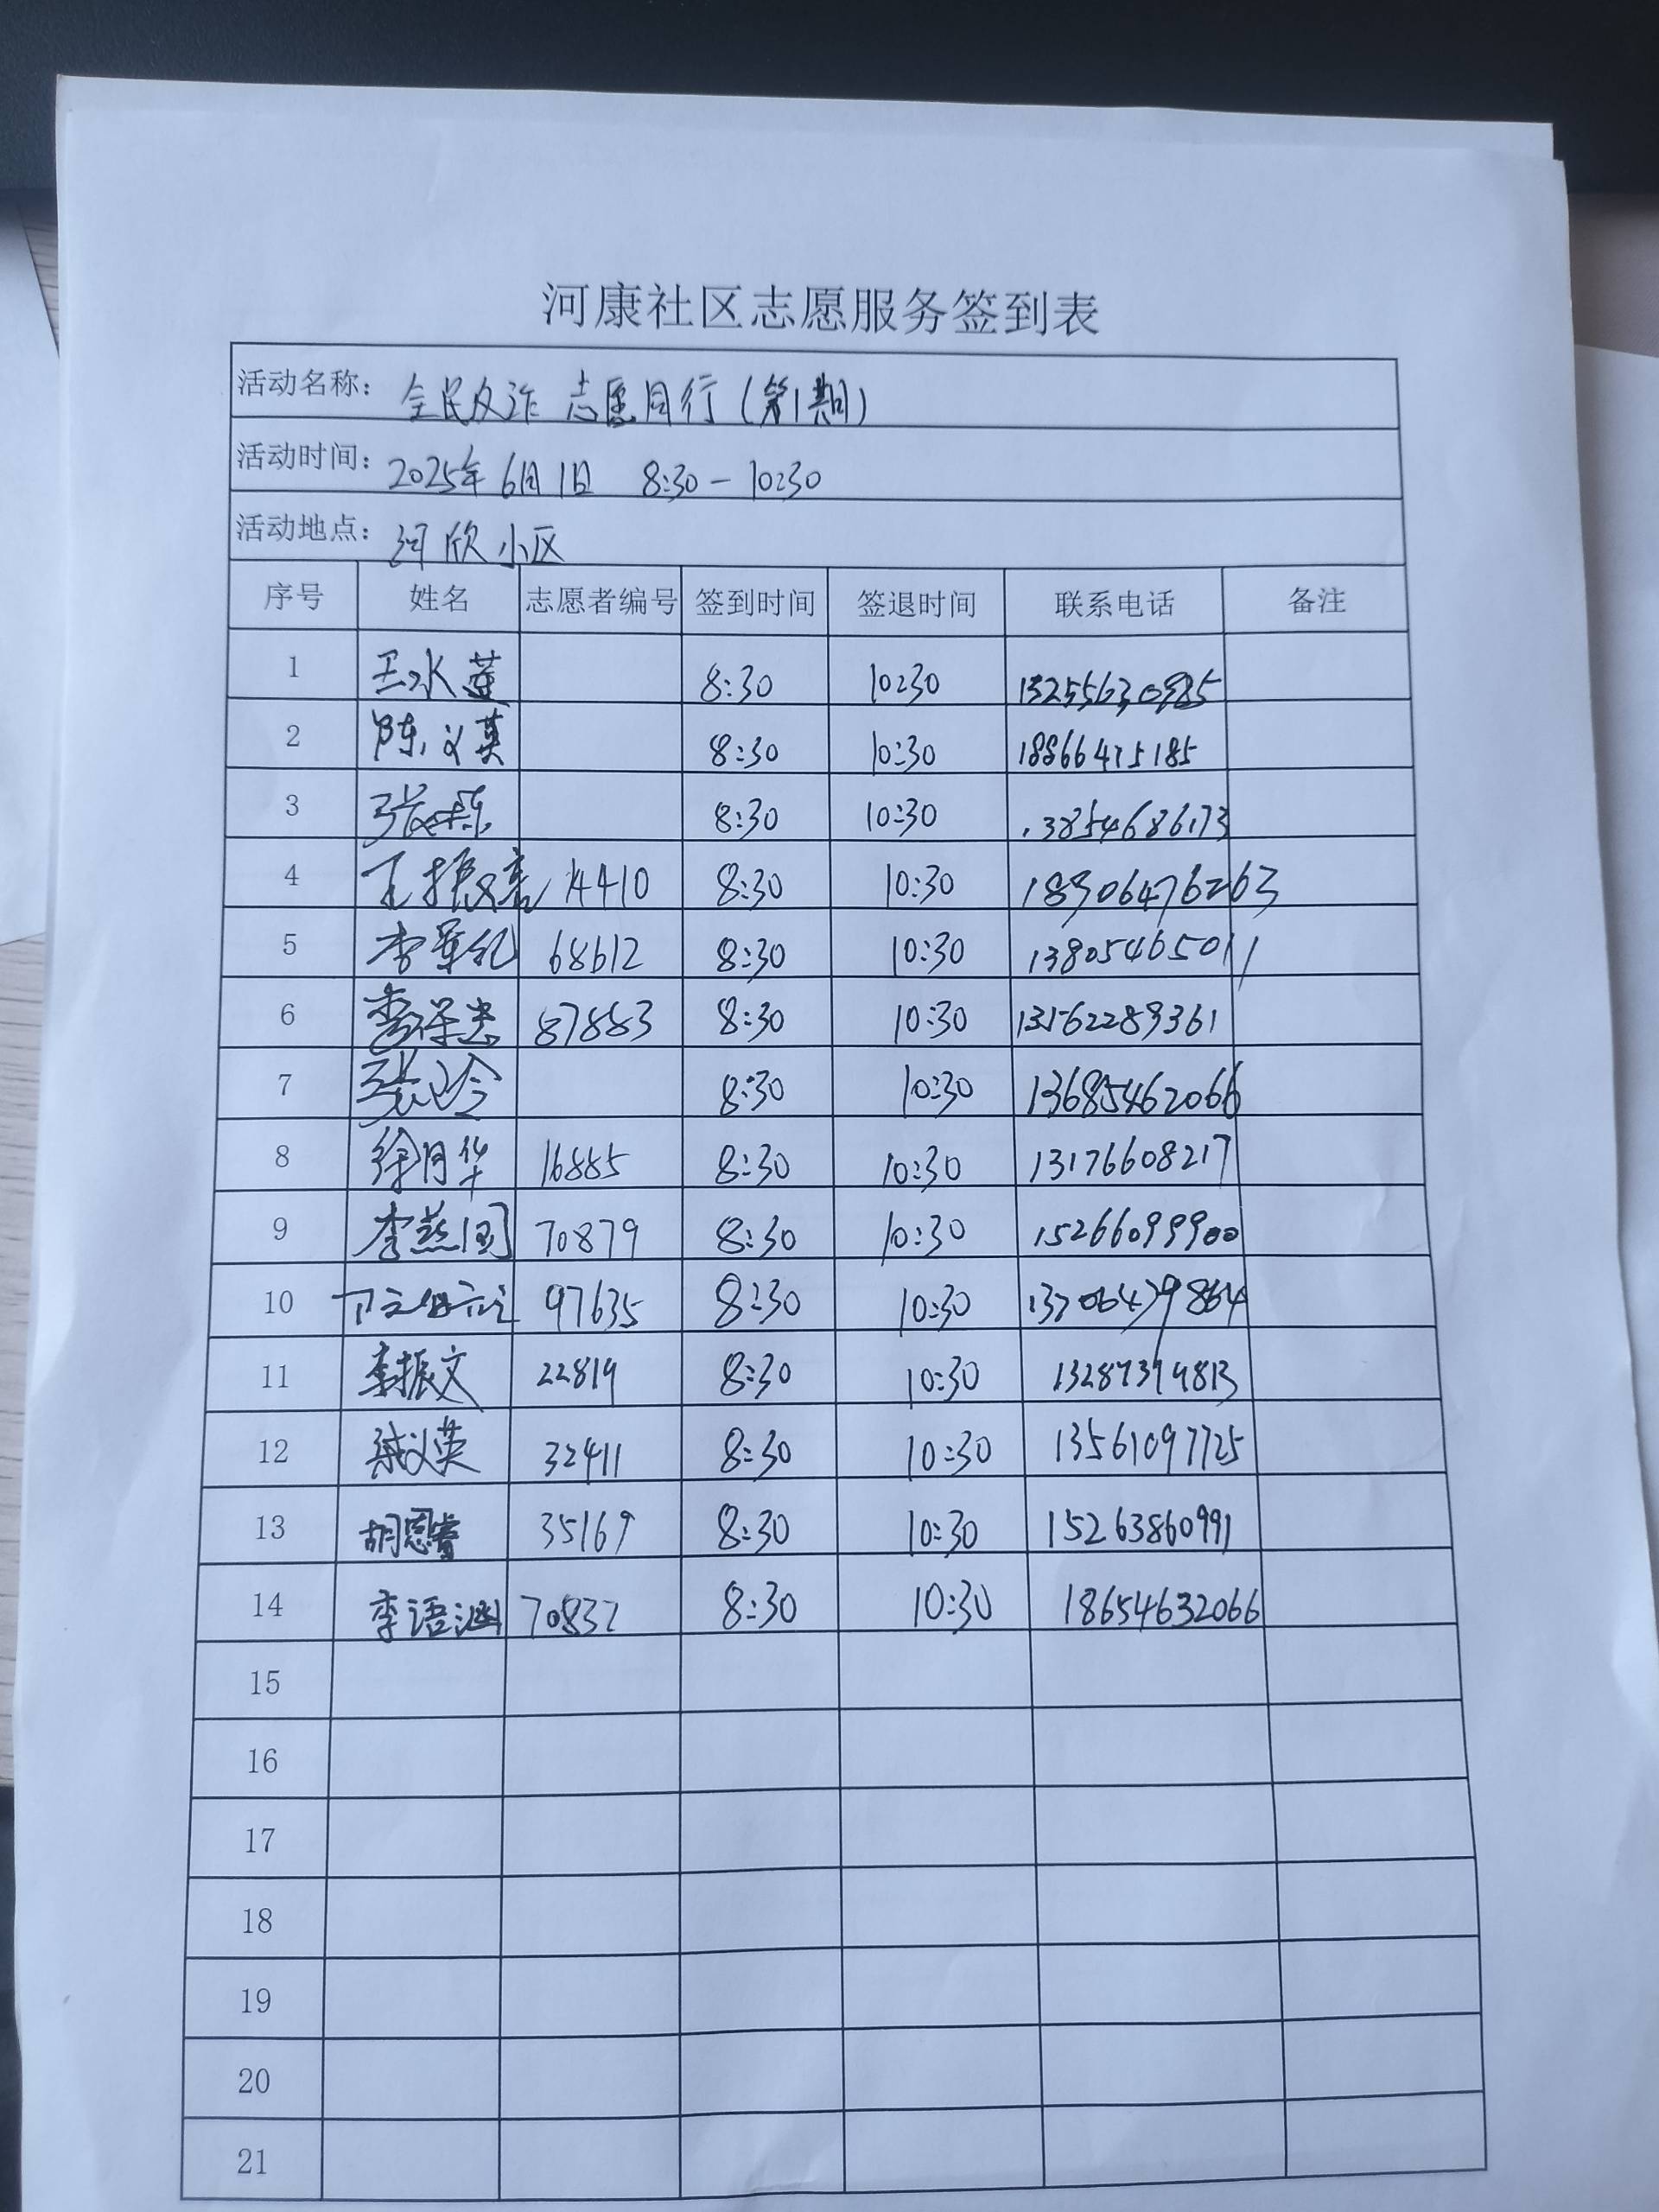 河康社区志愿服务签到表
活动名称: 全民反诈 志愿同行(第1期)
活动时间: 2025年6月1日 8:30-10:30
活动地点: 河欣小区
序号 姓名 志愿者编号 签到时间 签退时间 联系电话 备注
1 王水莲 8:30 10:30
2 陈义英 8:30 10:30 18866475185
3 8:30 10:30 13854686173
4 14410 8:30 10:30 18906476263
5 68612 8:30 10:30 13805465011
6 87883 8:30 10:30 13562289361
7 8:30 10:30 13685462066
8 徐月华 16885 8:30 10:30 13176608217
9 70879 8:30 10:30 15266099900
10 97635 8:30 10:30
11 李振文 22819 8:30 10:30
12 32411 8:30 10:30 13561097725
13 胡恩睿 35169 8:30 10:30 15263860991
14 李语涵 70832 8:30 10:30 18654632066
15
16
17
18
19
20
21